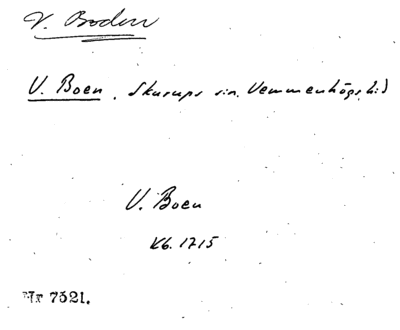 V. Boden
V. Boen, Skurups sn. Vemmenhögs hd
V. Boen
Kb. 1715
Nr 7521.